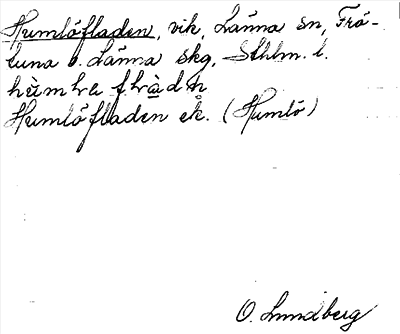 Humlöfladen, vik, Länna sn, Frö-
tuna o. Länna skg, Sthlm. l.
Humlöfladen ek. (Humlö)
O. Lundberg